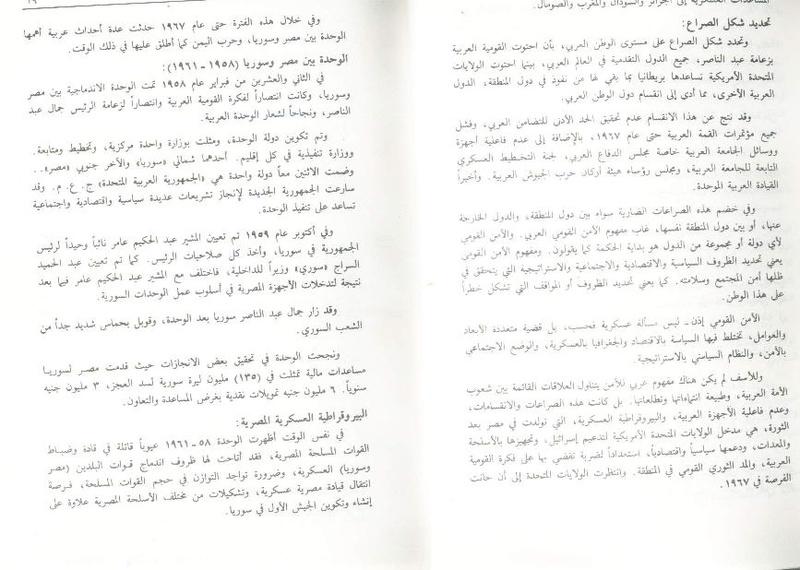 المساعدات العسكرية إلى الجزائر والسودان والمغرب والصومال.
تحديد شكل الصراع:
وتحدد شكل الصراع على مستوى الوطن العربي، بأن احتوت القومية العربية
بزعامة عبد الناصر، جميع الدول التقدمية في العالم العربي، بينما احتوت الولايات
المتحدة الأمريكية تساعدها بريطانيا بما بقي لها من نفوذ في دول المنطقة، الدول
العربية الأخرى، مما أدى إلى انقسام دول الوطن العربي.
وقد نتج عن هذا الانقسام عدم تحقيق الحد الأدنى للتضامن العربي، وفشل
جميع مؤتمرات القمة العربية حتى عام ١٩٦٧، بالإضافة إلى عدم فاعلية أجهزة
ووسائل الجامعة العربية خاصة مجلس الدفاع العربي، لجنة التخطيط العسكري
التابعة للجامعة العربية، ومجلس رؤساء هيئة أركان حرب الجيوش العربية. وأخيراً
القيادة العربية الموحدة.
وفي خضم هذه الصراعات انضارية سواء بين دول المنطقة، والدول الخارجة
عنها، أو بين دول المنطقة نفسها، غاب مفهوم الأمن القومي العربي. والأمن القومي
لأي دولة أو مجموعة من الدول هو بداية الحكمة كما يقولون. ومفهوم الأمن القومي
يعني تحديد الظروف السياسية والاقتصادية والاجتماعية والاستراتيجية التي يتحقق في
ظلها أمن المجتمع وسلامته. كما يعني تحديد الظروف أو المواقف التي تشكل خطراً
على هذا الوطن.
الأمن القومي إذن - ليس مسألة عسكرية فحسب، بل قضية متعددة الأبعاد
والعوامل، تختلط فيها السياسة بالاقتصاد والجغرافيا بالعسكرية، والوضع الاجتماعي
بالأمن، والنظام السياسي بالاستراتيجية.
وللأسف لم يكن هناك مفهوم عربي للأمن يتناول العلاقات القائمة بين شعوب
الأمة العربية، وطبيعة انتماءاتها وتطلعاتها. بل كانت هذه الصراعات والانقسامات،
وعدم فاعلية الأجهزة العربية، والبيروقراطية العسكرية، التي تولدت في مصر بعد
الثورة، هي مدخل الولايات المتحدة الأمريكية لتدعيم إسرائيل، وتجهيزها بالأسلحة
والمعدات، ودعمها سياسياً واقتصادياً، استعداداً لضربة تقضي بها على فكرة القومية
العربية، والمد الثوري القومي في المنطقة. وانتظرت الولايات المتحدة إلى أن حانت
الفرصة في ١٩٦٧.
وفي خلال هذه الفترة حتى عام ١٩٦٧ حدثت عدة أحداث عربية أهمها
الوحدة بين مصر وسوريا، وحرب اليمن كما أطلق عليها في ذلك الوقت.
الوحدة بين مصر وسوريا (١٩٥٨ - ١٩٦١):
في الثاني والعشرين من فبراير عام ١٩٥٨ تمت الوحدة الاندماجية بين مصر
وسوريا، وكانت انتصاراً لفكرة القومية العربية وانتصاراً لزعامة الرئيس جمال عبد
الناصر، ونجاحاً لشعار الوحدة العربية.
وتم تكوين دولة الوحدة، ومثلت بوزارة واحدة مركزية، وتخطيط ومتابعة.
ووزارة تنفيذية في كل إقليم. أحدهما شمالي «سوريا» والآخر جنوبي «مصر»..
وضمت الاثنين معاً دولة واحدة هي «الجمهورية العربية المتحدة» ج. ع. م. وقد
سارعت الجمهورية الجديدة لإنجاز تشريعات عديدة سياسية واقتصادية واجتماعية
تساعد على تنفيذ الوحدة.
وفي أكتوبر عام ١٩٥٩ تم تعيين المشير عبد الحكيم عامر نائباً وحيداً لرئيس
الجمهورية في سوريا، وأخذ كل صلاحيات الرئيس. كما تم تعيين عبد الحميد
السراج «سوري» وزيراً للداخلية، فاختلف مع المشير عبد الحكيم عامر فيما بعد
نتيجة لتدخلات الأجهزة المصرية في أسلوب عمل الوحدات السورية.
وقد زار جمال عبد الناصر سوريا بعد الوحدة، وقوبل بحماس شديد جداً من
الشعب السوري.
ونجحت الوحدة في تحقيق بعض الانجازات حيث قدمت مصر لسوريا
مساعدات مالية تمثلت في (١٣٥) مليون ليرة سورية لسد العجز، ٣ مليون جنيه
سنوياً. ٦ مليون جنيه تمويلات نقدية بغرض المساعدة والتعاون.
البيروقراطية العسكرية المصرية:
في نفس الوقت أظهرت الوحدة ٥٨ - ١٩٦١ عيوباً قاتلة في قادة وضباط
القوات المسلحة المصرية، فقد أتاحت لها ظروف اندماج قوات البلدين (مصر
وسوريا) العسكرية، وضرورة تواجد التوازن في حجم القوات المسلحة، فرصة
انتقال قيادة مصرية عسكرية، وتشكيلات من مختلف الأسلحة المصرية علاوة على
إنشاء وتكوين الجيش الأول في سوريا.